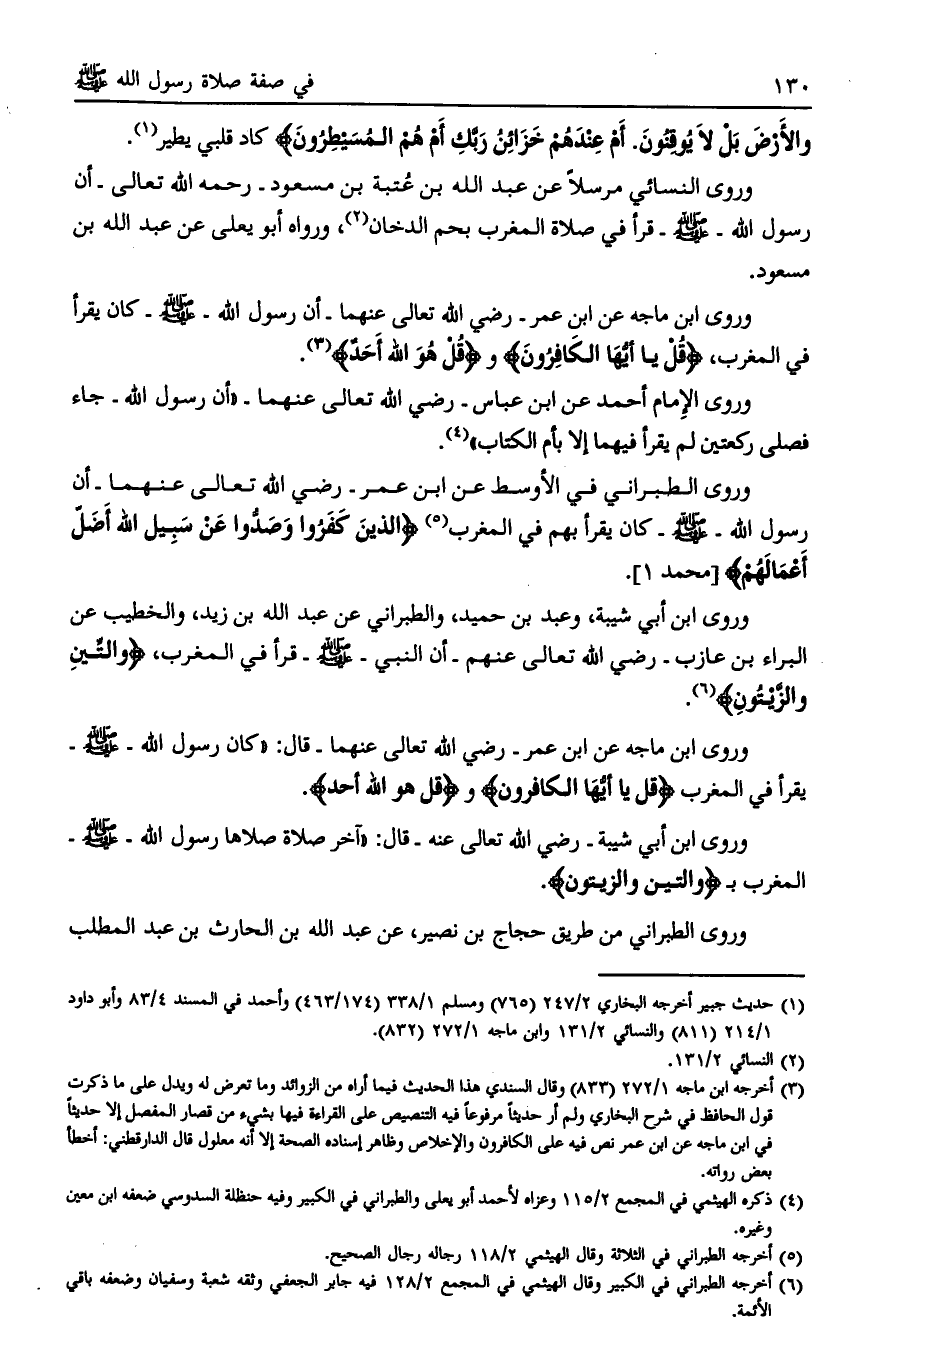 ١٣٠ في صفة صلاة رسول الله ﷺ
والأَرْضَ بَلْ لاَ يُوقِنُونَ. أَمْ عِنْدَهُمْ خَزَائِنُ رَبِّكِ أَمْ هُمْ الـمُسَيْطِرُونَ﴾ كاد قلبي يطير(١).
وروى النسائي مرسلاً عن عبد الله بن عُتبة بن مسعود ـ رحمه الله تعالى ـ أن
رسول الله ـ ﷺ ـ قرأ في صلاة المغرب بحم الدخان(٢)، ورواه أبو يعلى عن عبد الله بن
مسعود.
وروى ابن ماجه عن ابن عمر ـ رضي الله تعالى عنهما ـ أن رسول الله ـ ﷺ ـ كان يقرأ
في المغرب، ﴿قُلْ يـا أَيُّهَا الكَافِرُونَ﴾ و ﴿قُلْ هُوَ الله أَحَدٌ﴾(٣).
وروى الإمام أحمد عن ابن عباس ـ رضي الله تعالى عنهما ـ «أن رسول الله ـ جاء
فصلى ركعتين لم يقرأ فيهما إلا بأم الكتاب»(٤).
وروى الطبراني في الأوسط عن ابن عمر ـ رضي الله تعالى عنهما ـ أن
رسول الله ـ ﷺ ـ كان يقرأ بهم في المغرب(٥) ﴿الذينَ كَفَرُوا وَصَدُّوا عَنْ سَبِيل الله أَضَلّ
أَعْمَالَهُمْ﴾ [محمد ١].
وروى ابن أبي شيبة، وعبد بن حميد، والطبراني عن عبد الله بن زيد، والخطيب عن
البراء بن عازب ـ رضي الله تعالى عنهم ـ أن النبي ـ ﷺ ـ قرأ في المغرب، ﴿والتِّينِ
والزَّيْتُونِ﴾(٦).
وروى ابن ماجه عن ابن عمر ـ رضي الله تعالى عنهما ـ قال: «كان رسول الله ـ ﷺ ـ
يقرأ في المغرب ﴿قل يا أيُّهَا الكافرون﴾ و ﴿قل هو الله أحد﴾.
وروى ابن أبي شيبة ـ رضي الله تعالى عنه ـ قال: «آخر صلاة صلاها رسول الله ـ ﷺ ـ
المغرب بـ ﴿والتين والزيتون﴾.
وروى الطبراني من طريق حجاج بن نصير، عن عبد الله بن الحارث بن عبد المطلب
(١) حديث جبير أخرجه البخاري ٢٤٧/٢ (٧٦٥) ومسلم ٣٣٨/١ (٤٦٣/١٧٤) وأحمد في المسند ٨٣/٤ وأبو داود
٢١٤/١ (٨١١) والنسائي ١٣١/٢ وابن ماجه ٢٧٢/١ (٨٣٢).
(٢) النسائي ١٣١/٢.
(٣) أخرجه ابن ماجه ٢٧٢/١ (٨٣٣) وقال السندي هذا الحديث فيما أراه من الزوائد وما تعرض له ويدل على ما ذكرت
قول الحافظ في شرح البخاري ولم أر حديثاً مرفوعاً فيه التنصيص على القراءة فيها بشيء من قصار المفصل إلا حديثاً
في ابن ماجه عن ابن عمر نص فيه على الكافرون والإخلاص وظاهر إسناده الصحة إلا أنه معلول قال الدارقطني: أخطأ
بعض رواته.
(٤) ذكره الهيثمي في المجمع ١١٥/٢ وعزاه لأحمد أبو يعلى والطبراني في الكبير وفيه حنظلة السدوسي ضعفه ابن معين
وغيره.
(٥) أخرجه الطبراني في الثلاثة وقال الهيثمي ١١٨/٢ رجاله رجال الصحيح.
(٦) أخرجه الطبراني في الكبير وقال الهيثمي في المجمع ١٢٨/٢ فيه جابر الجعفي وثقه شعبة وسفيان وضعفه باقي
الأئمة.